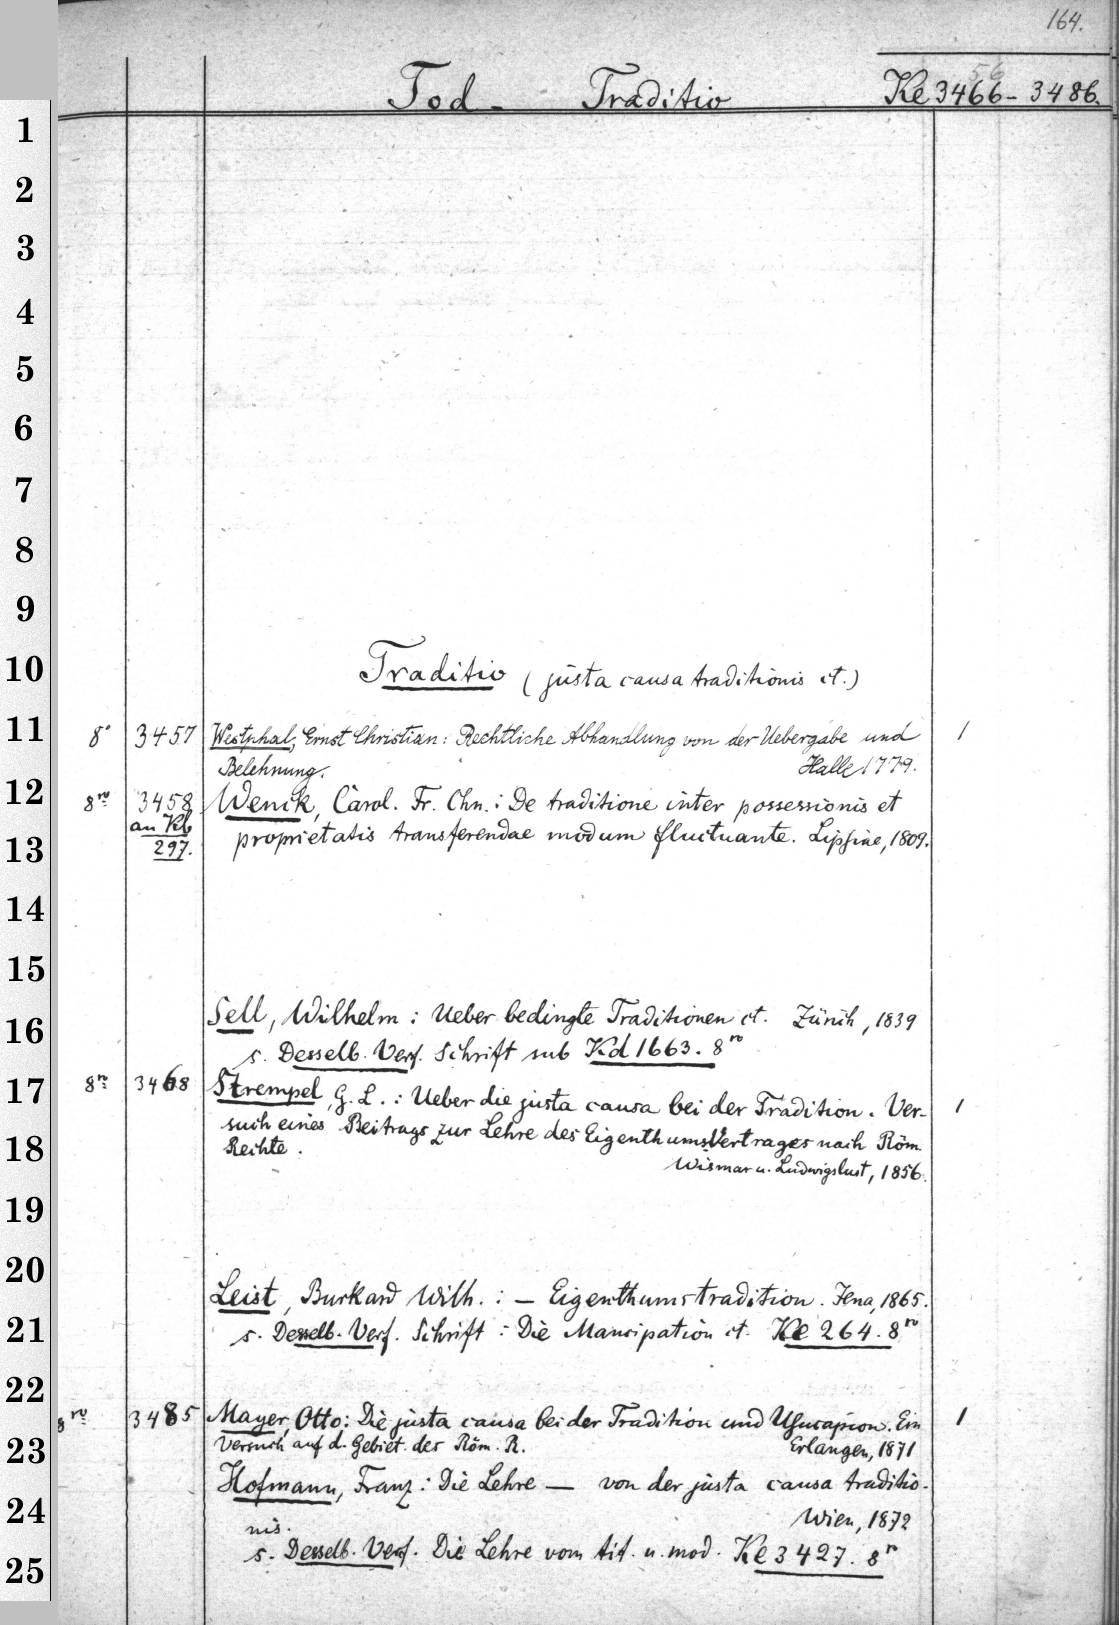 164.
56
Tod - Traditio Ke 3466 - 3486.
1
2
3
4
5
6
7
8
9
10 Traditio (justa causa traditionis ct.)
11 8° 3457 Westphal, Ernst Christian: Rechtliche Abhandlung von der Uebergabe und 1
Belehnung. Halle 1779.
12 8ro 3458 Wenck, Carol. Fr. Chn.: De traditione inter possessionis et
an Kb
13 297. proprietatis transferendae modum fluctuante. Lipsiae, 1809.
14
15
16 Sell, Wilhelm: Ueber bedingte Traditionen ct. Zürich, 1839
s. Desselb. Verf. Schrift sub Kd 1663. 8ro
17 8ro 3468 Strempel, G. L.: Ueber die justa causa bei der Tradition. Ver- 1
such eines Beitrags zur Lehre des Eigenthums Vertrages nach Röm.
18 Rechte.
Wismar u. Ludwigslust, 1856.
19
20 Leist, Burkard Wilh.: — Eigenthumstradition. Jena, 1865.
21 s. Desselb. Verf. Schrift: Die Mancipation ct. Ke 264. 8ro
22 8ro 3485 Mayer, Otto: Die justa causa bei der Tradition und Usucapion. Ein 1
23 Versuch auf d. Gebiet des Röm. R. Erlangen, 1871
Hofmann, Franz: Die Lehre — von der justa causa traditio-
24 nis. Wien, 1872
25 s. Desselb. Verf. Die Lehre vom tit. u. mod. Ke 3427. 8ro